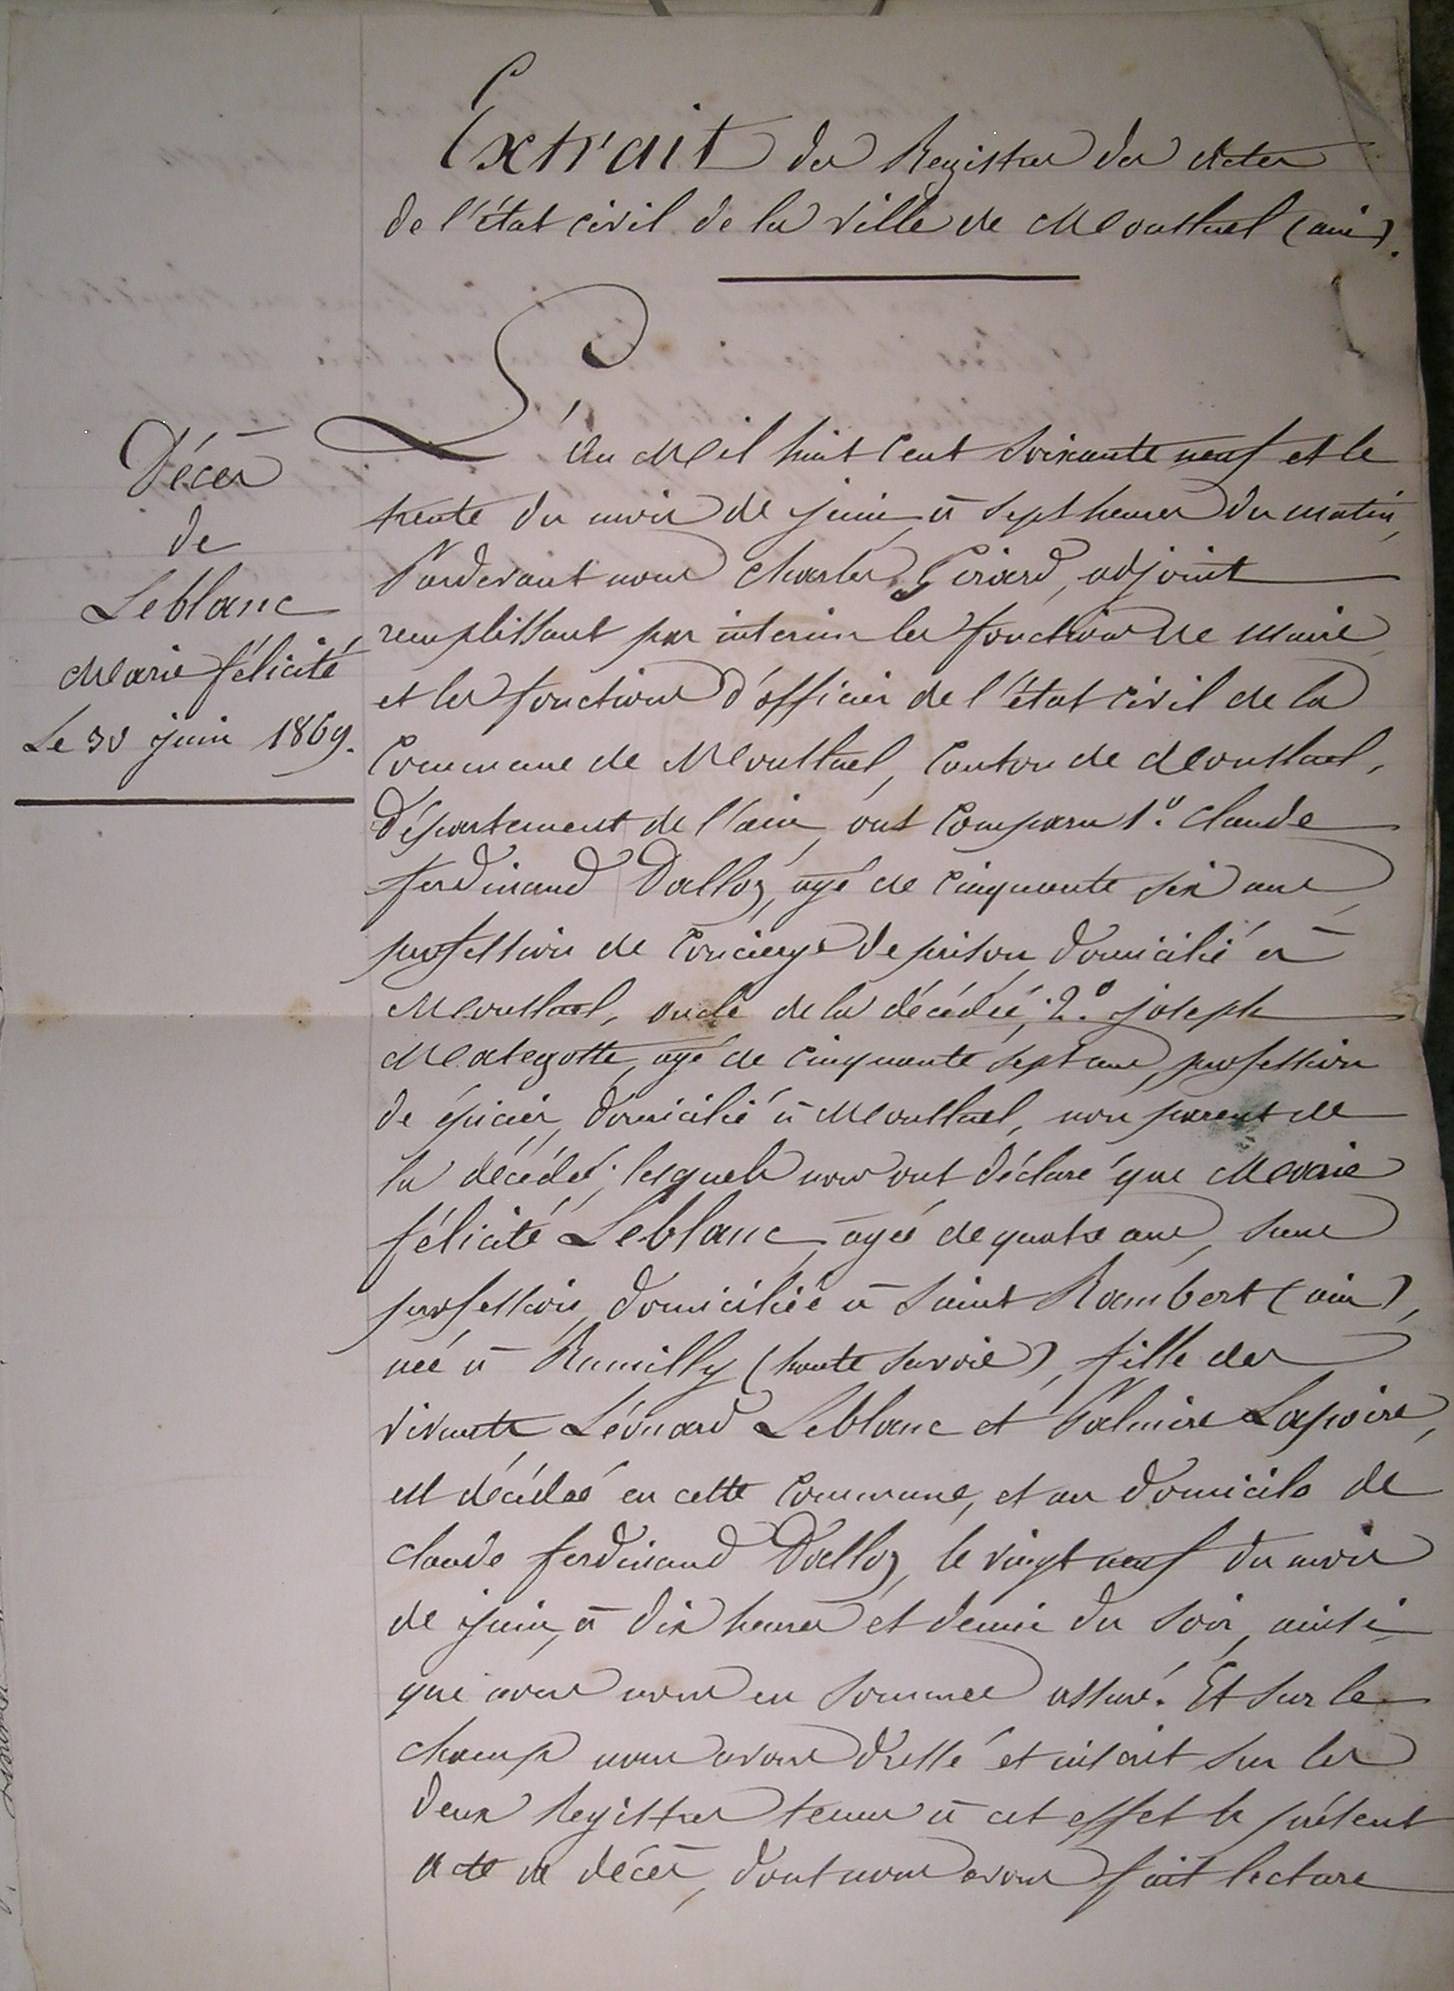 Extrait des Registres des actes
de l'état civil de la ville de Montluel (ain).
Décès
de
Leblanc
Marie félicité
Le 30 juin 1869.
L'an Mil huit cent soixante neuf et le
trente du mois de juin, à sept heures du matin,
Pardevant nous Charles Girard, adjoint
remplissant par interim les fonctions de Maire
et les fonctions d'officier de l'état civil de la
Commune de Montluel, canton de Montluel,
Département de l'ain, ont comparu 1º. Claude
ferdinand Dalloz, agé de cinquante six ans,
profession de concierge de prison, domicilié à
Montluel, oncle de la décédée; 2º. joseph
Mategotte, agé de cinquante sept ans, profession
de épicier, domicilié à Montluel, non parent de
la décédée; lesquels nous ont déclaré que Marie
félicité Leblanc, agée de quatre ans, sans
profession, domiciliée à Saint Rambert (ain),
née à Rumilly (haute Savoie), fille des
vivants Léonard Leblanc et Palmire Lapoire,
est décédée en cette commune, et au domicile de
Claude ferdinand Dalloz, le vingt neuf du mois
de juin, à dix heures et demie du soir, ainsi
que nous nous en sommes assuré. Et sur le
champ nous avons dressé et inscrit sur les
deux Registres tenus à cet effet le présent
acte de décès, dont nous avons fait lecture